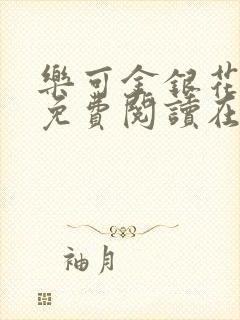 樂可金銀花
免費閱讀在
袖月